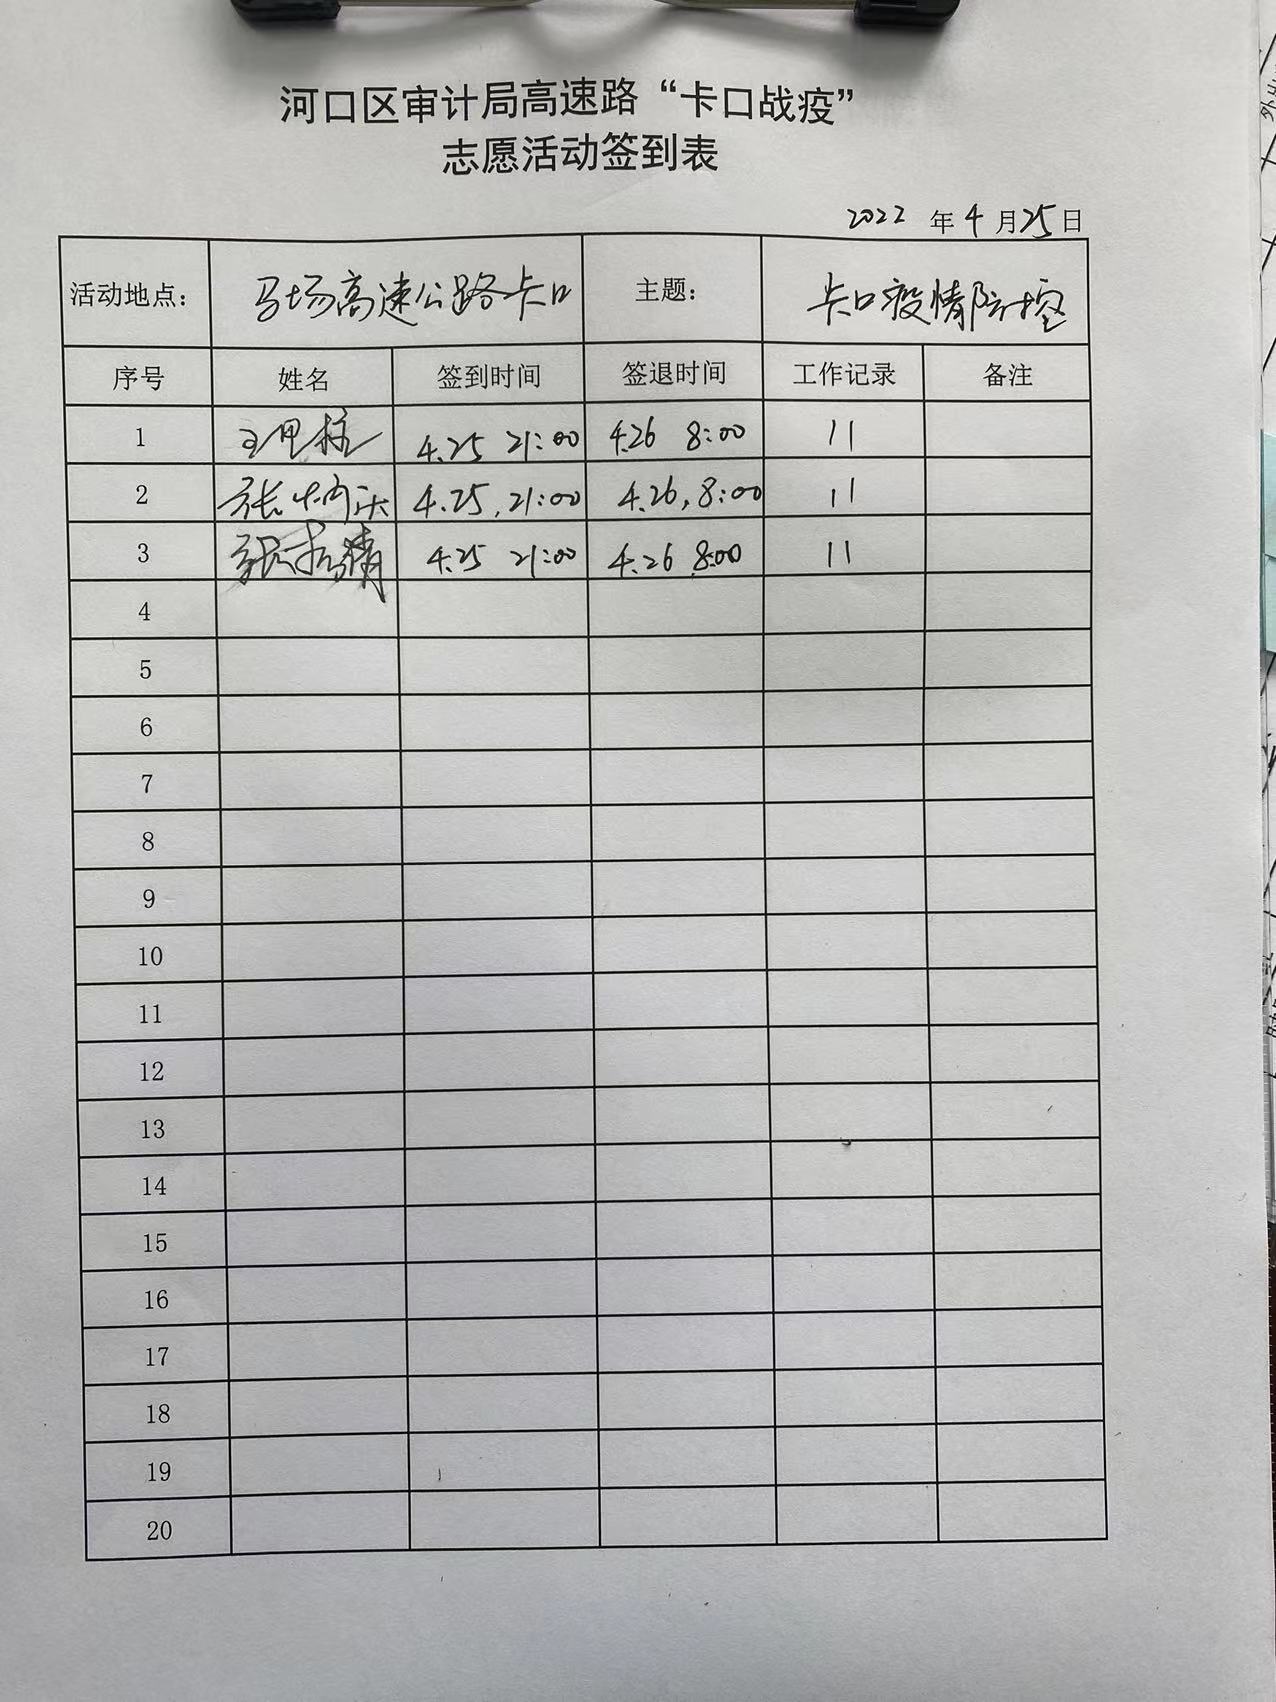 河口区审计局高速路“卡口战疫”
志愿活动签到表
2022 年 4 月 25 日
活动地点： 马场高速公路卡口 主题： 卡口疫情防控
序号 姓名 签到时间 签退时间 工作记录 备注
1 4.25 21:00 4.26 8:00 11
2 4.25, 21:00 4.26, 8:00 11
3 4.25 21:00 4.26 8:00 11
4
5
6
7
8
9
10
11
12
13
14
15
16
17
18
19
20